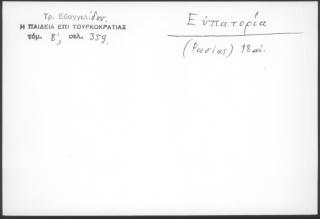 Τρ. Εὐαγγελίδου
Η ΠΑΙΔΕΙΑ ΕΠΙ ΤΟΥΡΚΟΚΡΑΤΙΑΣ
τόμ. β', σελ. 359
Εὐπατορία
(Ρωσίας) 18 αἰ.